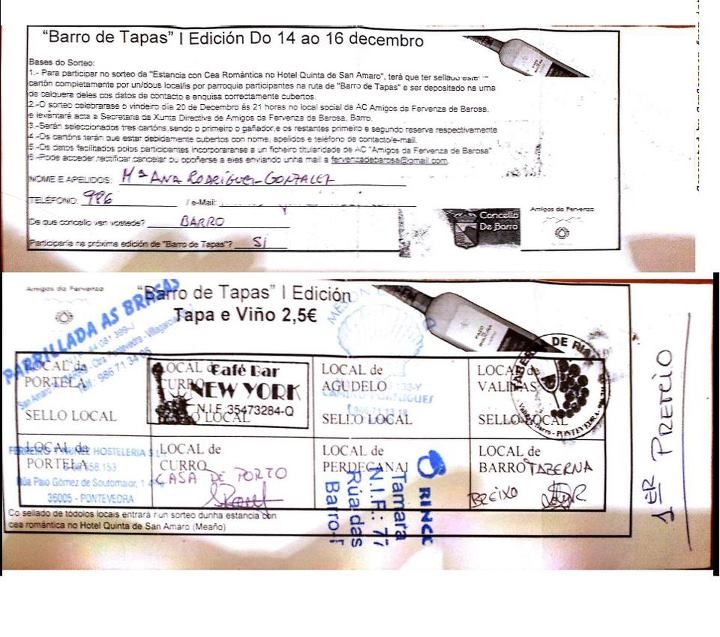 "Barro de Tapas" I Edición Do 14 ao 16 decembro
Bases do Sorteo:
1.- Para participar no sorteo da "Estancia con Cea Romántica no Hotel Quinta de San Amaro", terá que ter sellado este
cartón completamente por un/dous local/is por parroquia participantes na ruta de "Barro de Tapas" e ser depositado na urna
de calquera deles cos datos de contacto e enquisa correctamente cubertos.
2.-O sorteo celebrarase o vindeiro día 20 de Decembro ás 21 horas no local social da AC Amigos da Fervenza de Barosa,
e levantará acta a Secretaria da Xunta Directiva de Amigos da Fervenza de Barosa, Barro.
3.-Serán seleccionados tres cartóns, sendo o primeiro o gañador, e os restantes primeiro e segundo reserva respectivamente
4.-Os cartóns terán que estar debidamente cubertos con nome, apelidos e teléfono de contacto/e-mail.
5.-Os datos facilitados polos participantes incorporaranse a un ficheiro titularidade de AC "Amigos da Fervenza de Barosa"
6.-Pode acceder, rectificar, cancelar ou opoñerse a eles enviando unha mail a fervenzadebarosa@gmail.com.
NOME E APELIDOS: Mª ANA RODRÍGUEZ GONZALEZ
TELÉFONO: 986 / e-Mail:
De que concello ven vostede? BARRO
Participaría na próxima edición de "Barro de Tapas"? SI
Concello
De Barro
Amigos da Fervenza
Amigos da Fervenza
"Barro de Tapas" I Edición
Tapa e Viño 2,5€
PARRILLADA AS BRASAS
LOCAL de
PORTELA
SELLO LOCAL
LOCAL de
CURRO
LOCAL
Café Bar
NEW YORK
N.I.F. 35473284-Q
LOCAL de
AGUDELO
SELLO LOCAL
LOCAL
SELLO LOCAL
PONTEVEDRA
LOCAL de
PORTELA
HOSTELERIA S.L
Rúa Paio Gómez de Soutomaior, 1
36005 - PONTEVEDRA
LOCAL de
CURRO
CASA DE PORTO
LOCAL de
PERDECANAI
RINCÓ
Tamara
N.I.F.: 77
Rúa das
Barro-
LOCAL de
BARRO TAZERNA
BREIXO
1ER PREMIO
Co sellado de tódolos locais entrará n un sorteo dunha estancia con
cea romántica no Hotel Quinta de San Amaro (Meaño)